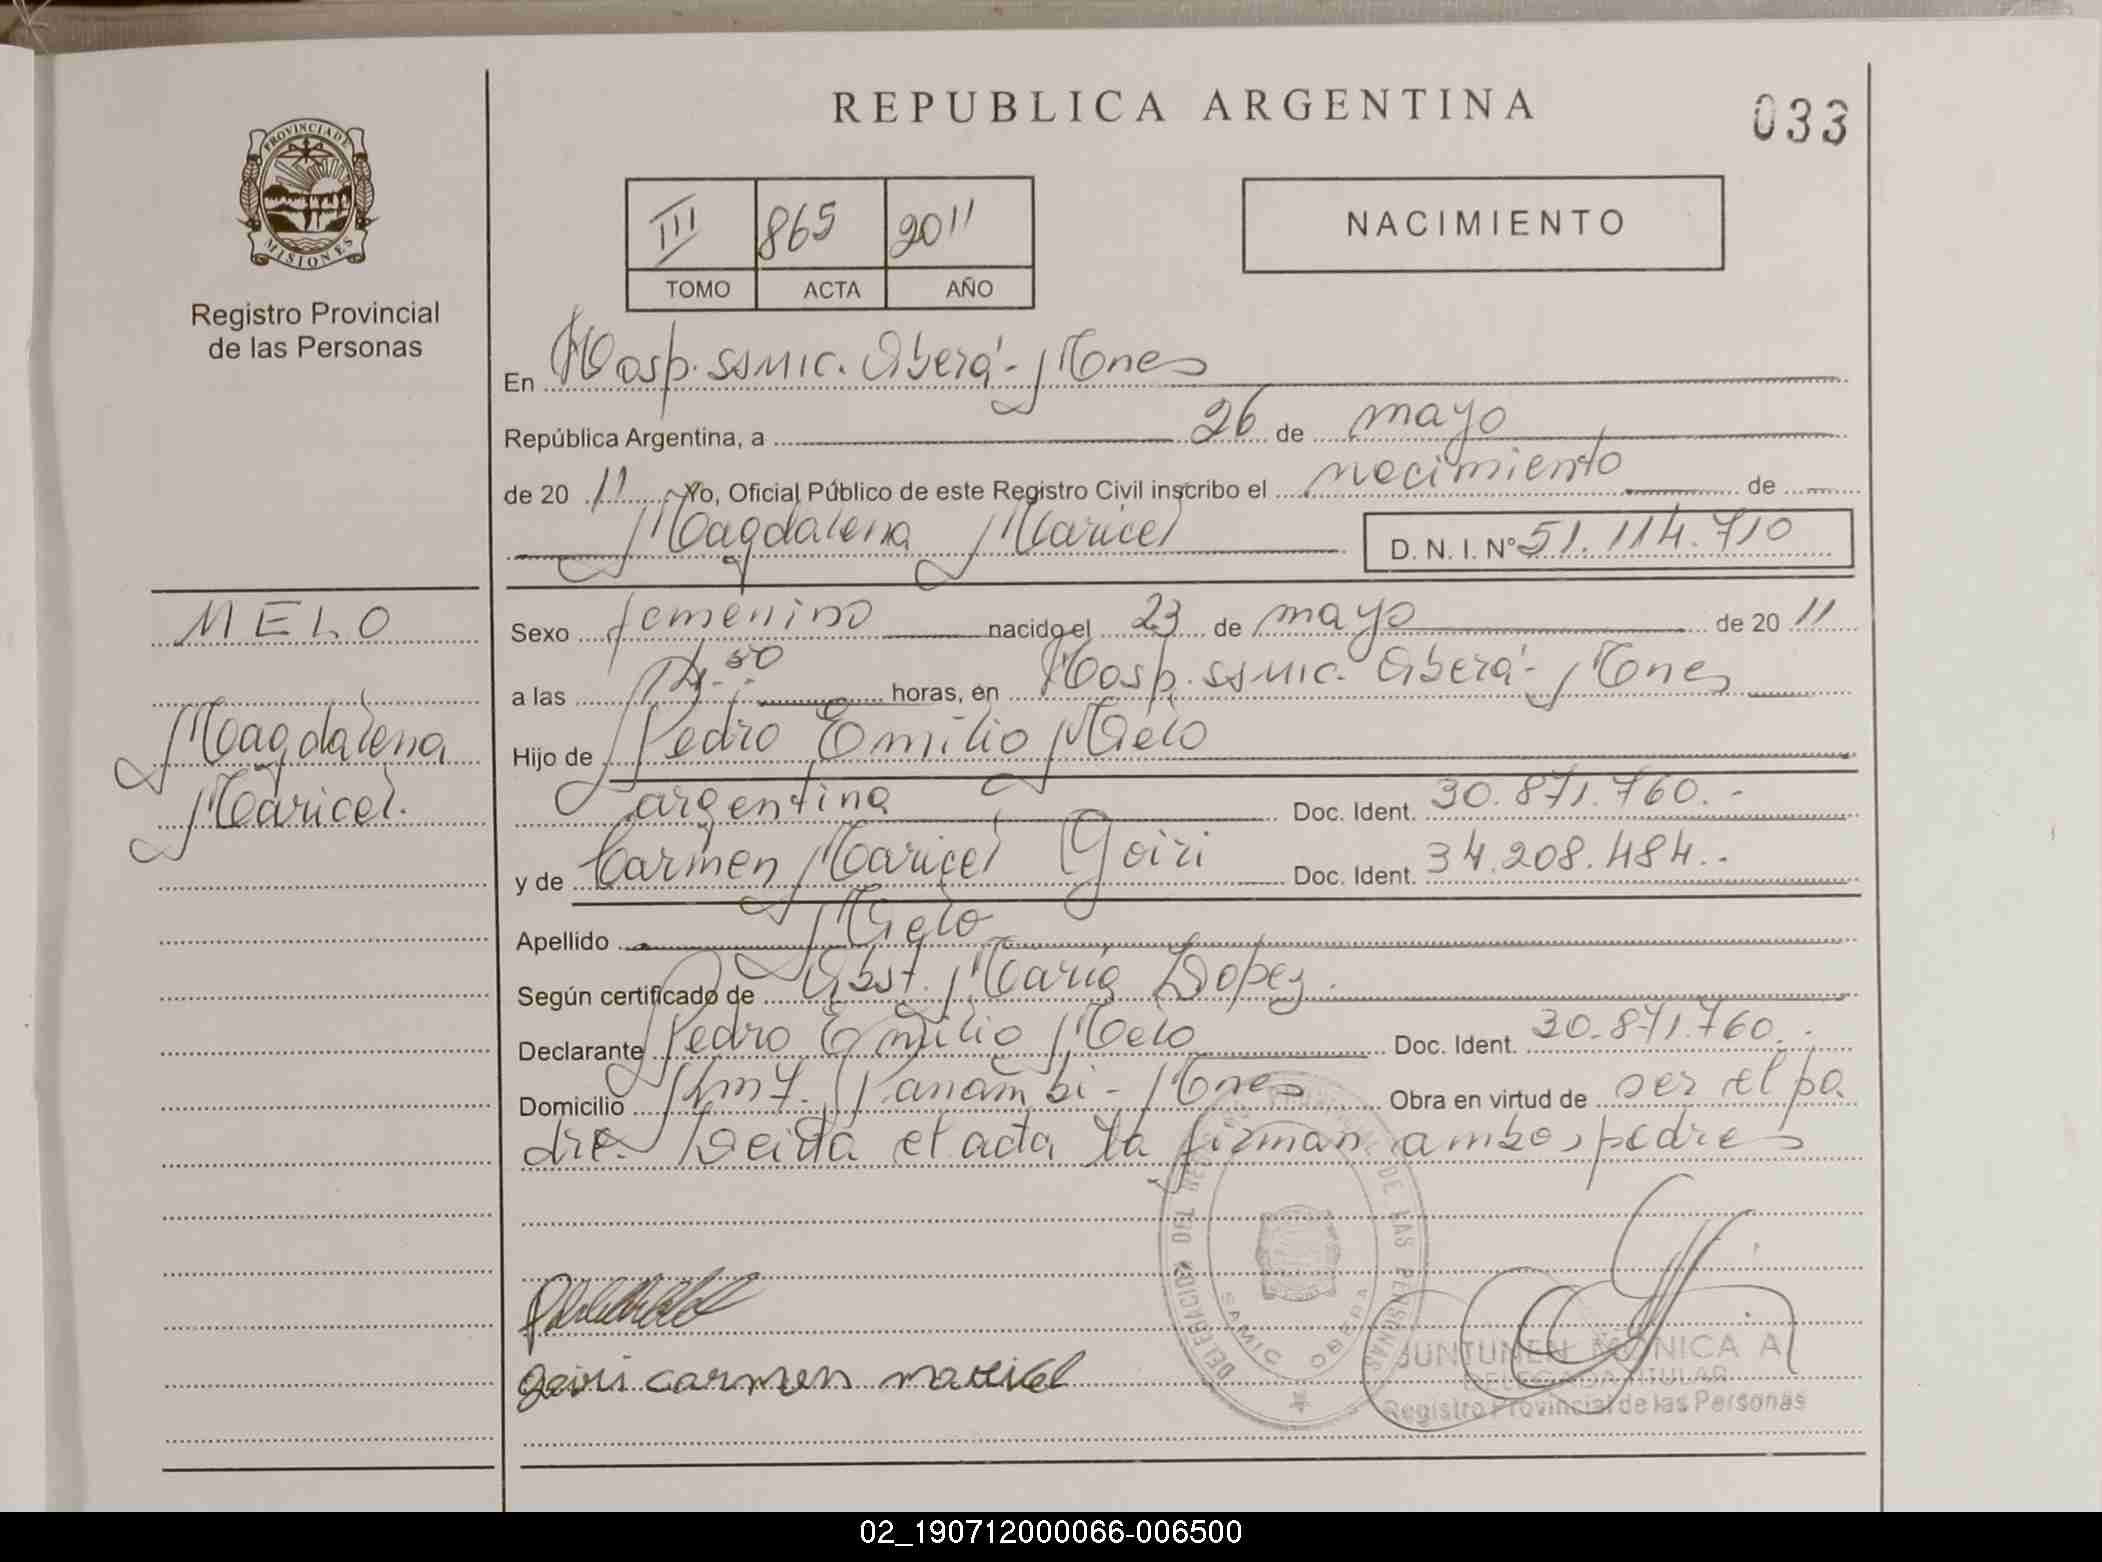 REPUBLICA ARGENTINA
033
PROVINCIA DE
MISIONES
Registro Provincial
de las Personas
III 865 2011
TOMO ACTA AÑO
NACIMIENTO
En Hosp. SSMIC. Oberá - Mnes
República Argentina, a 26 de mayo
de 20 11 Yo, Oficial Público de este Registro Civil inscribo el nacimiento de
Magdalena Maricel D. N. I. Nº 51.114.710
MELO
Magdalena
Maricel.
Sexo femenino nacido el 23 de mayo de 20 11
a las horas, en Hosp. SSMIC. Oberá - Mnes
Hijo de Pedro Emilio Melo
argentina Doc. Ident. 30.871.760.-
y de Carmen Maricel Goiri Doc. Ident. 34.208.484.-
Apellido Melo
Según certificado de Obst. María Lopez.
Declarante Pedro Emilio Melo Doc. Ident. 30.871.760.-
Domicilio Km 7. Panambi - Mnes Obra en virtud de ser el pa
dre. Leida el acta la firman ambos padres
DELEGACION DEL REGISTRO PROVINCIAL DE LAS PERSONAS
SAMIC OBERA
goiri carmen maricel
JUNTUNEN MONICA A
DELEGADA TITULAR
Registro Provincial de las Personas
02_190712000066-006500